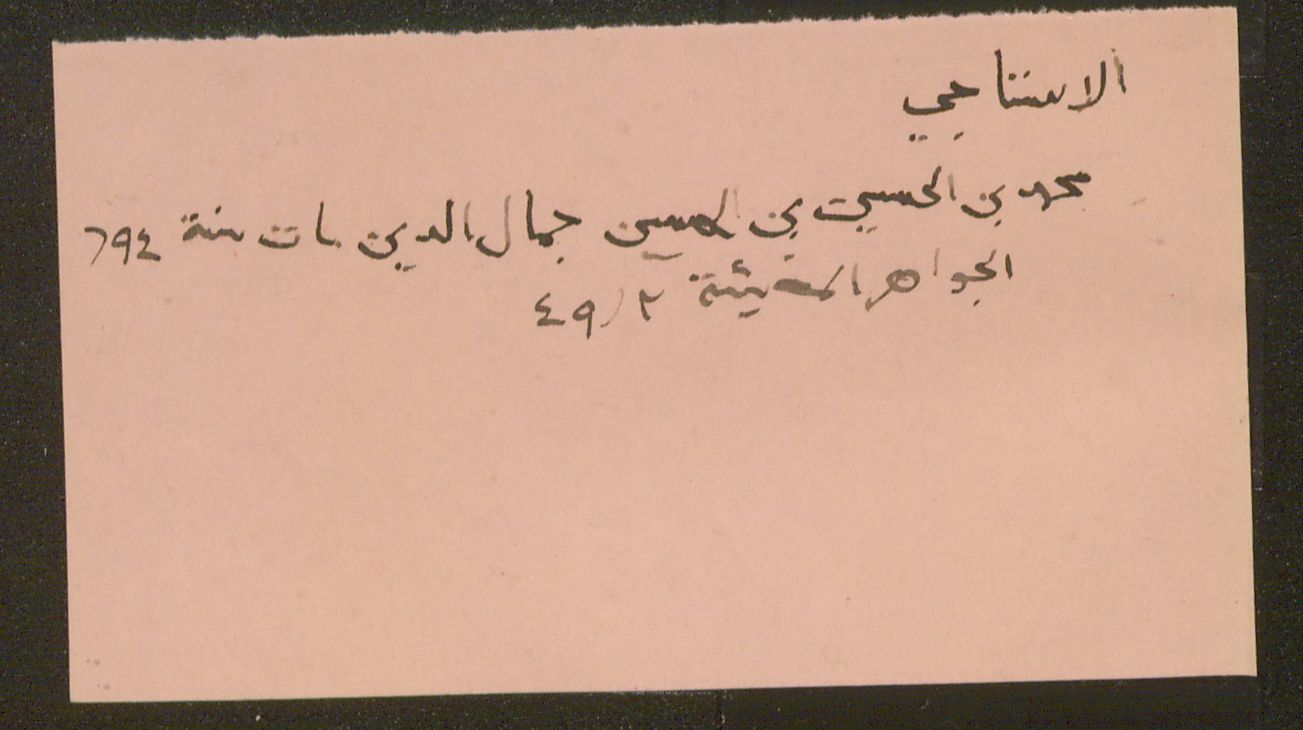 الاستاجي
محمد بن الحسين بن الحسين جمال الدين مات سنة ٦٩٤
الجواهر المضيئة ٢/٤٩